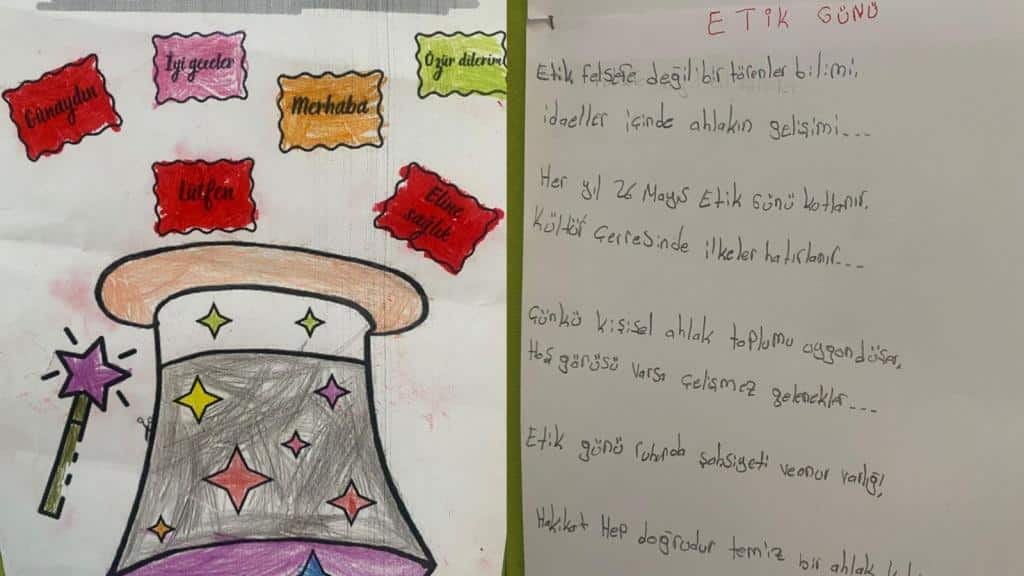 Günaydın
İyi geceler
Merhaba
Özür dilerim
Lütfen
Eline
sağlık
ETİK GÜNÜ
Etik felsefe değil bir törenler bilimi,
idaeller içinde ahlakın gelişimi...
Her yıl 26 Mayıs Etik Günü kutlanır,
Kültür Çerresinde ilkeler hatırlanır...
Çünkü kişisel ahlak toplumu
Hoş görüsü varsa çelişmez gelenekler...
Etik günü ruhunda şahsiyeti veonur varlığı,
Hakikat Hep doğrudur temiz bir ahlak